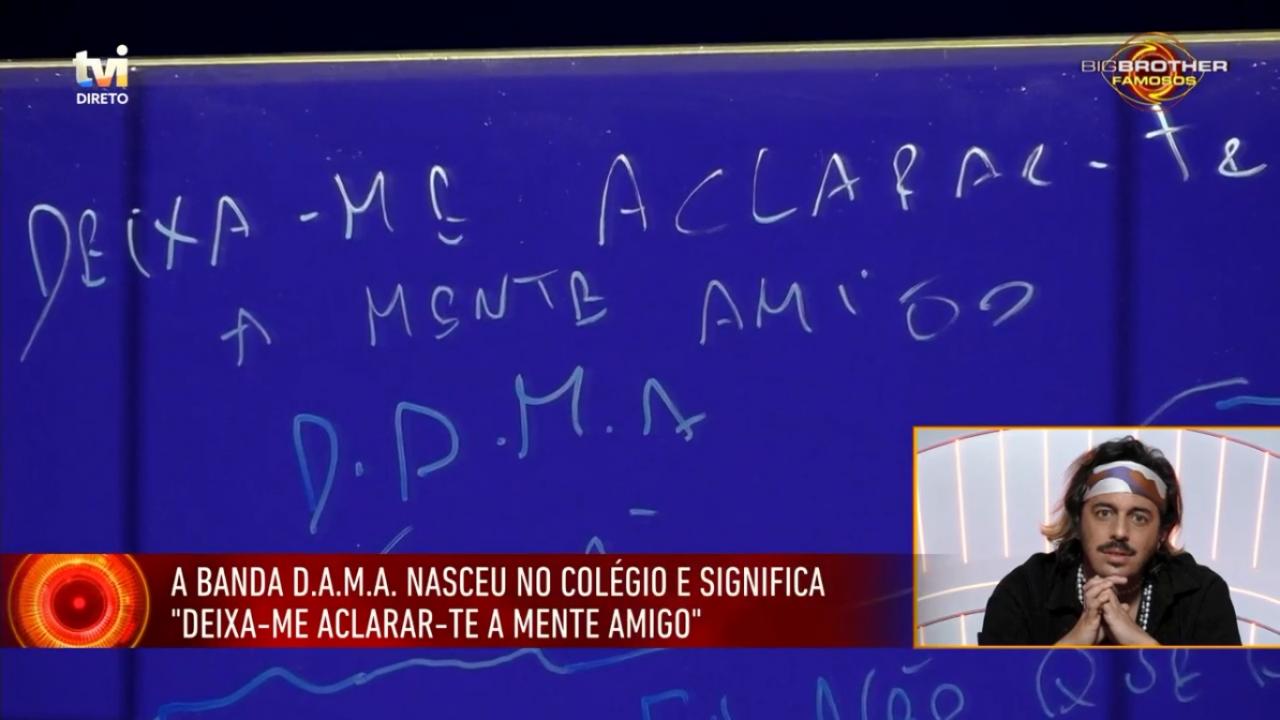 tvi
DIRETO
BIGBROTHER
FAMOSOS
DEIXA-ME ACLARAR-TE
A MENTE AMIGO
D.A.M.A
A BANDA D.A.M.A. NASCEU NO COLÉGIO E SIGNIFICA
"DEIXA-ME ACLARAR-TE A MENTE AMIGO"
NÃO QUE